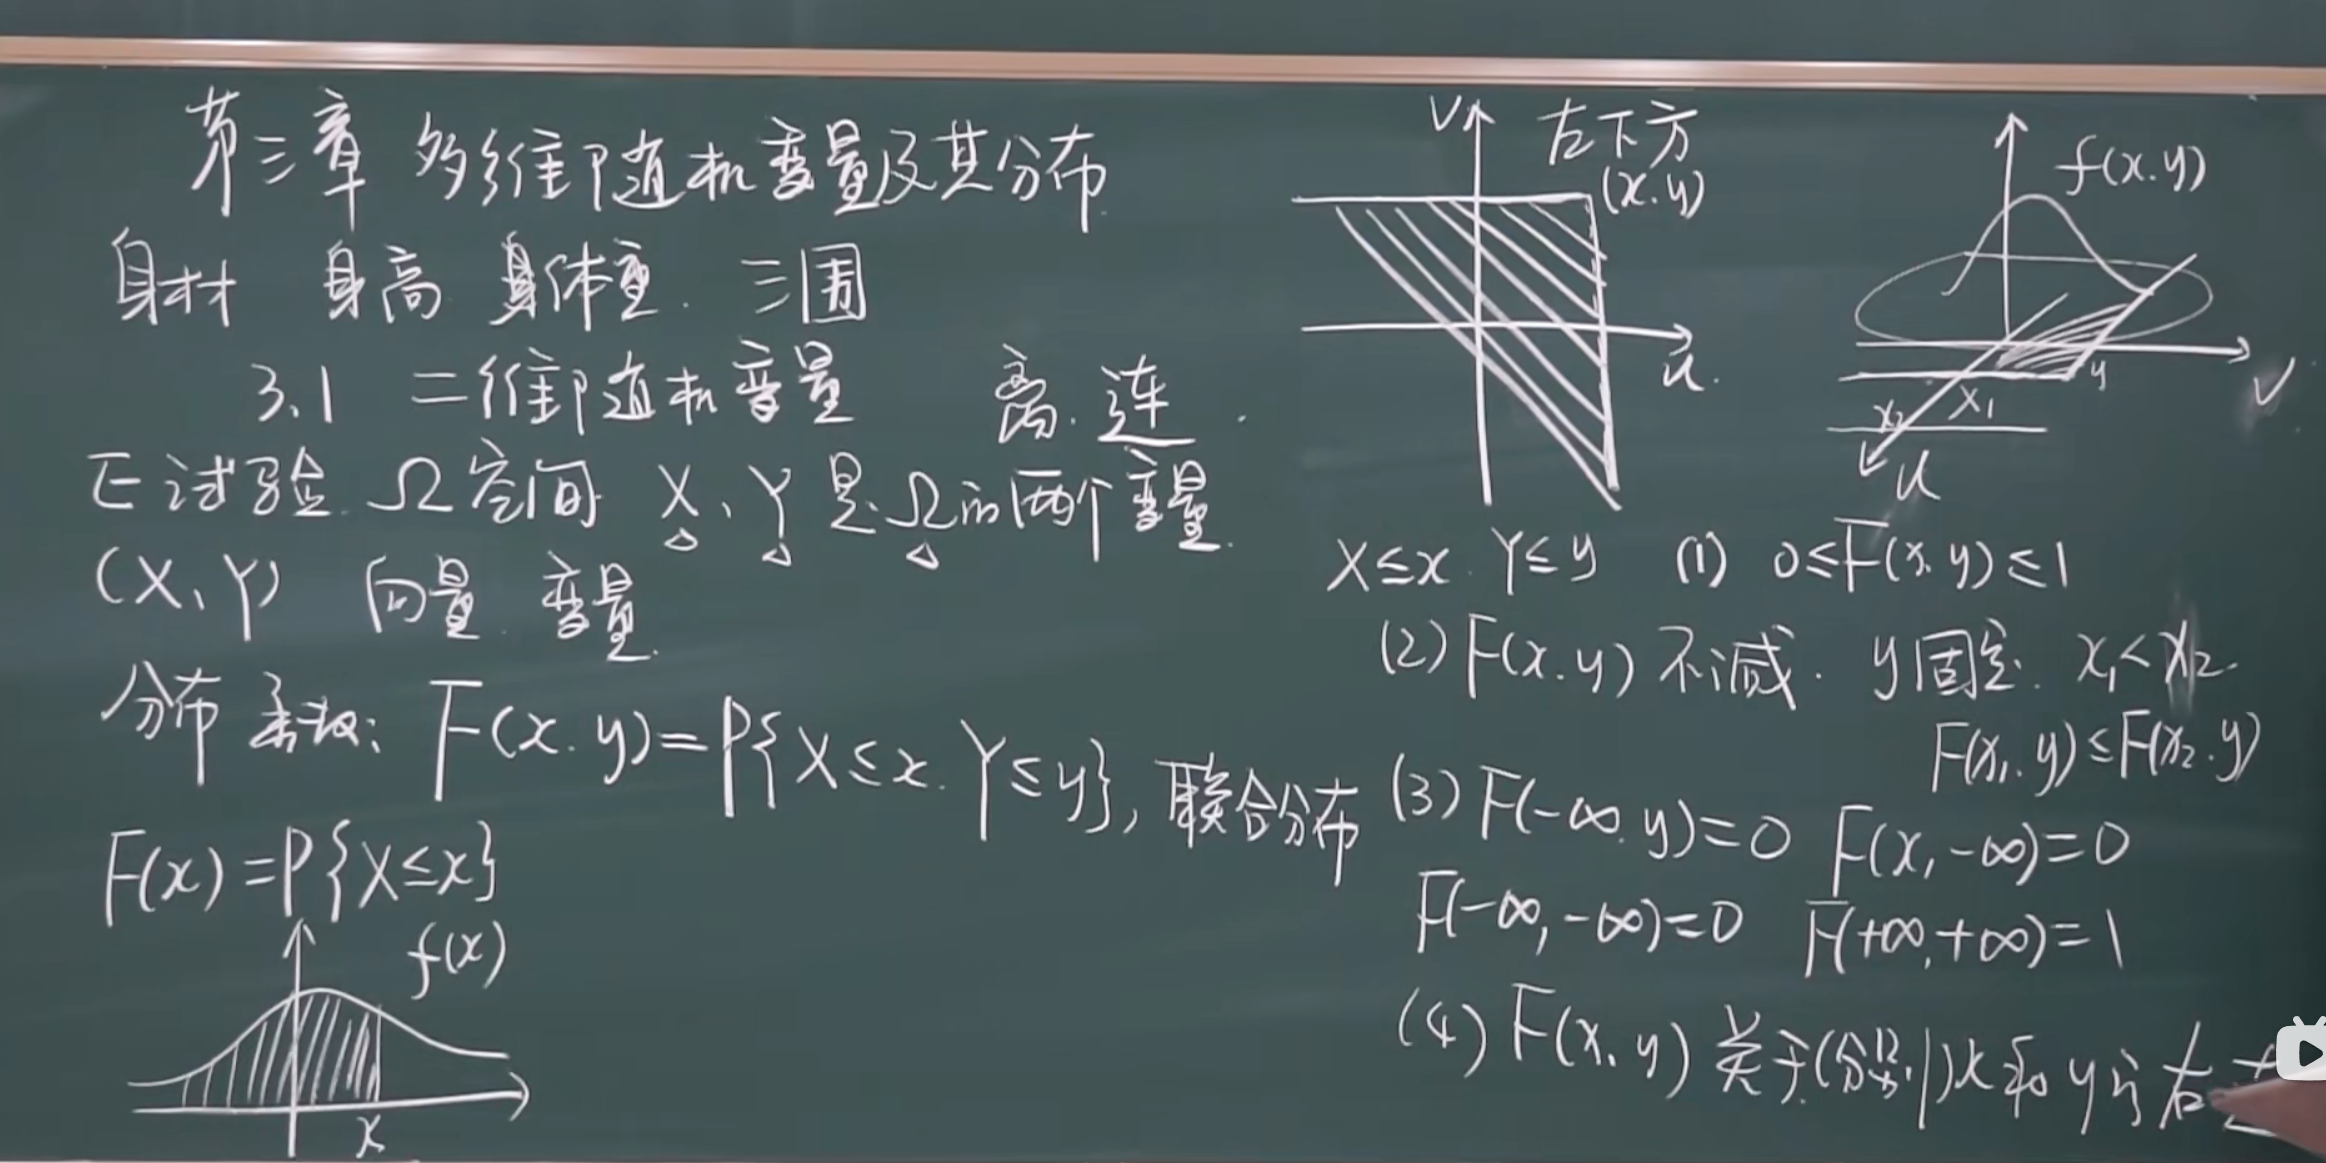 第三章 多维随机变量及其分布
身材 身高 体重. 三围
3.1 二维随机变量 离. 连.
E试验. Ω空间 X、Y是Ω的两个变量.
(X、Y) 向量. 变量.
分布函数: F(x.y)=P{X≤x. Y≤y}, 联合分布
F(x)=P{X≤x}
f(x)
x
V
左下方
(x.y)
u.
f(x.y)
V
y
x₁
x₂
u
X≤x. Y≤y (1) 0≤F(x.y)≤1
(2) F(x.y) 不减. y固定. x₁<x₂.
F(x₁.y)≤F(x₂.y)
(3) F(-∞.y)=0 F(x,-∞)=0
F(-∞,-∞)=0 F(+∞,+∞)=1
(4) F(x.y) 关于(分别)x和y 右